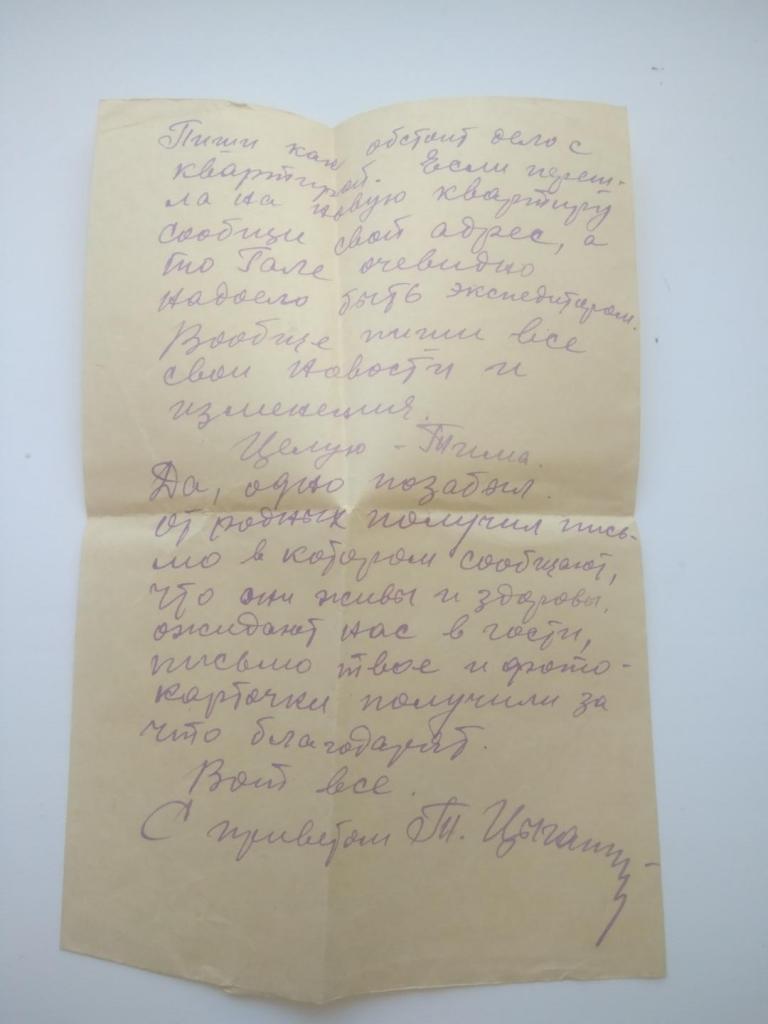 Пиши как обстоит дело с
квартирой. Если переш-
ла на новую квартиру
сообщи свой адрес, а
то Гале очевидно
надоело быть экспедитором.
Вообще пиши все
свои новости и
изменения.
Целую - Тима.
Да, одно позабыл.
от родных получил пись-
мо в котором сообщают,
что они живы и здоровы,
ожидают нас в гости,
письмо твое и фото-
карточки получили за
что благодарят.
Вот все.
С приветом Т.